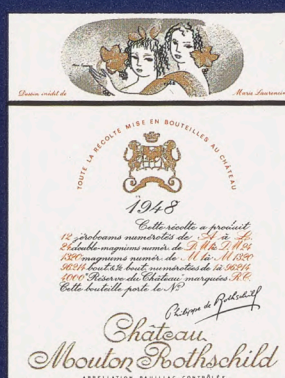 Dessin inédit de Marie Laurencin
TOUTE LA RÉCOLTE MISE EN BOUTEILLES AU CHÂTEAU
1948
Cette récolte a produit
12 jéroboams numérotés de à
24 double-magnums numér. de
1320 magnums numér. de M1 à M1320
96214 bout. & ½ bout. numérotées de 1 à 96214
4000 "Réserve du Château" marquées R.C.
Cette bouteille porte le Nº
Philippe de Rothschild
Château
Mouton Rothschild
APPELLATION PAUILLAC CONTRÔLÉE